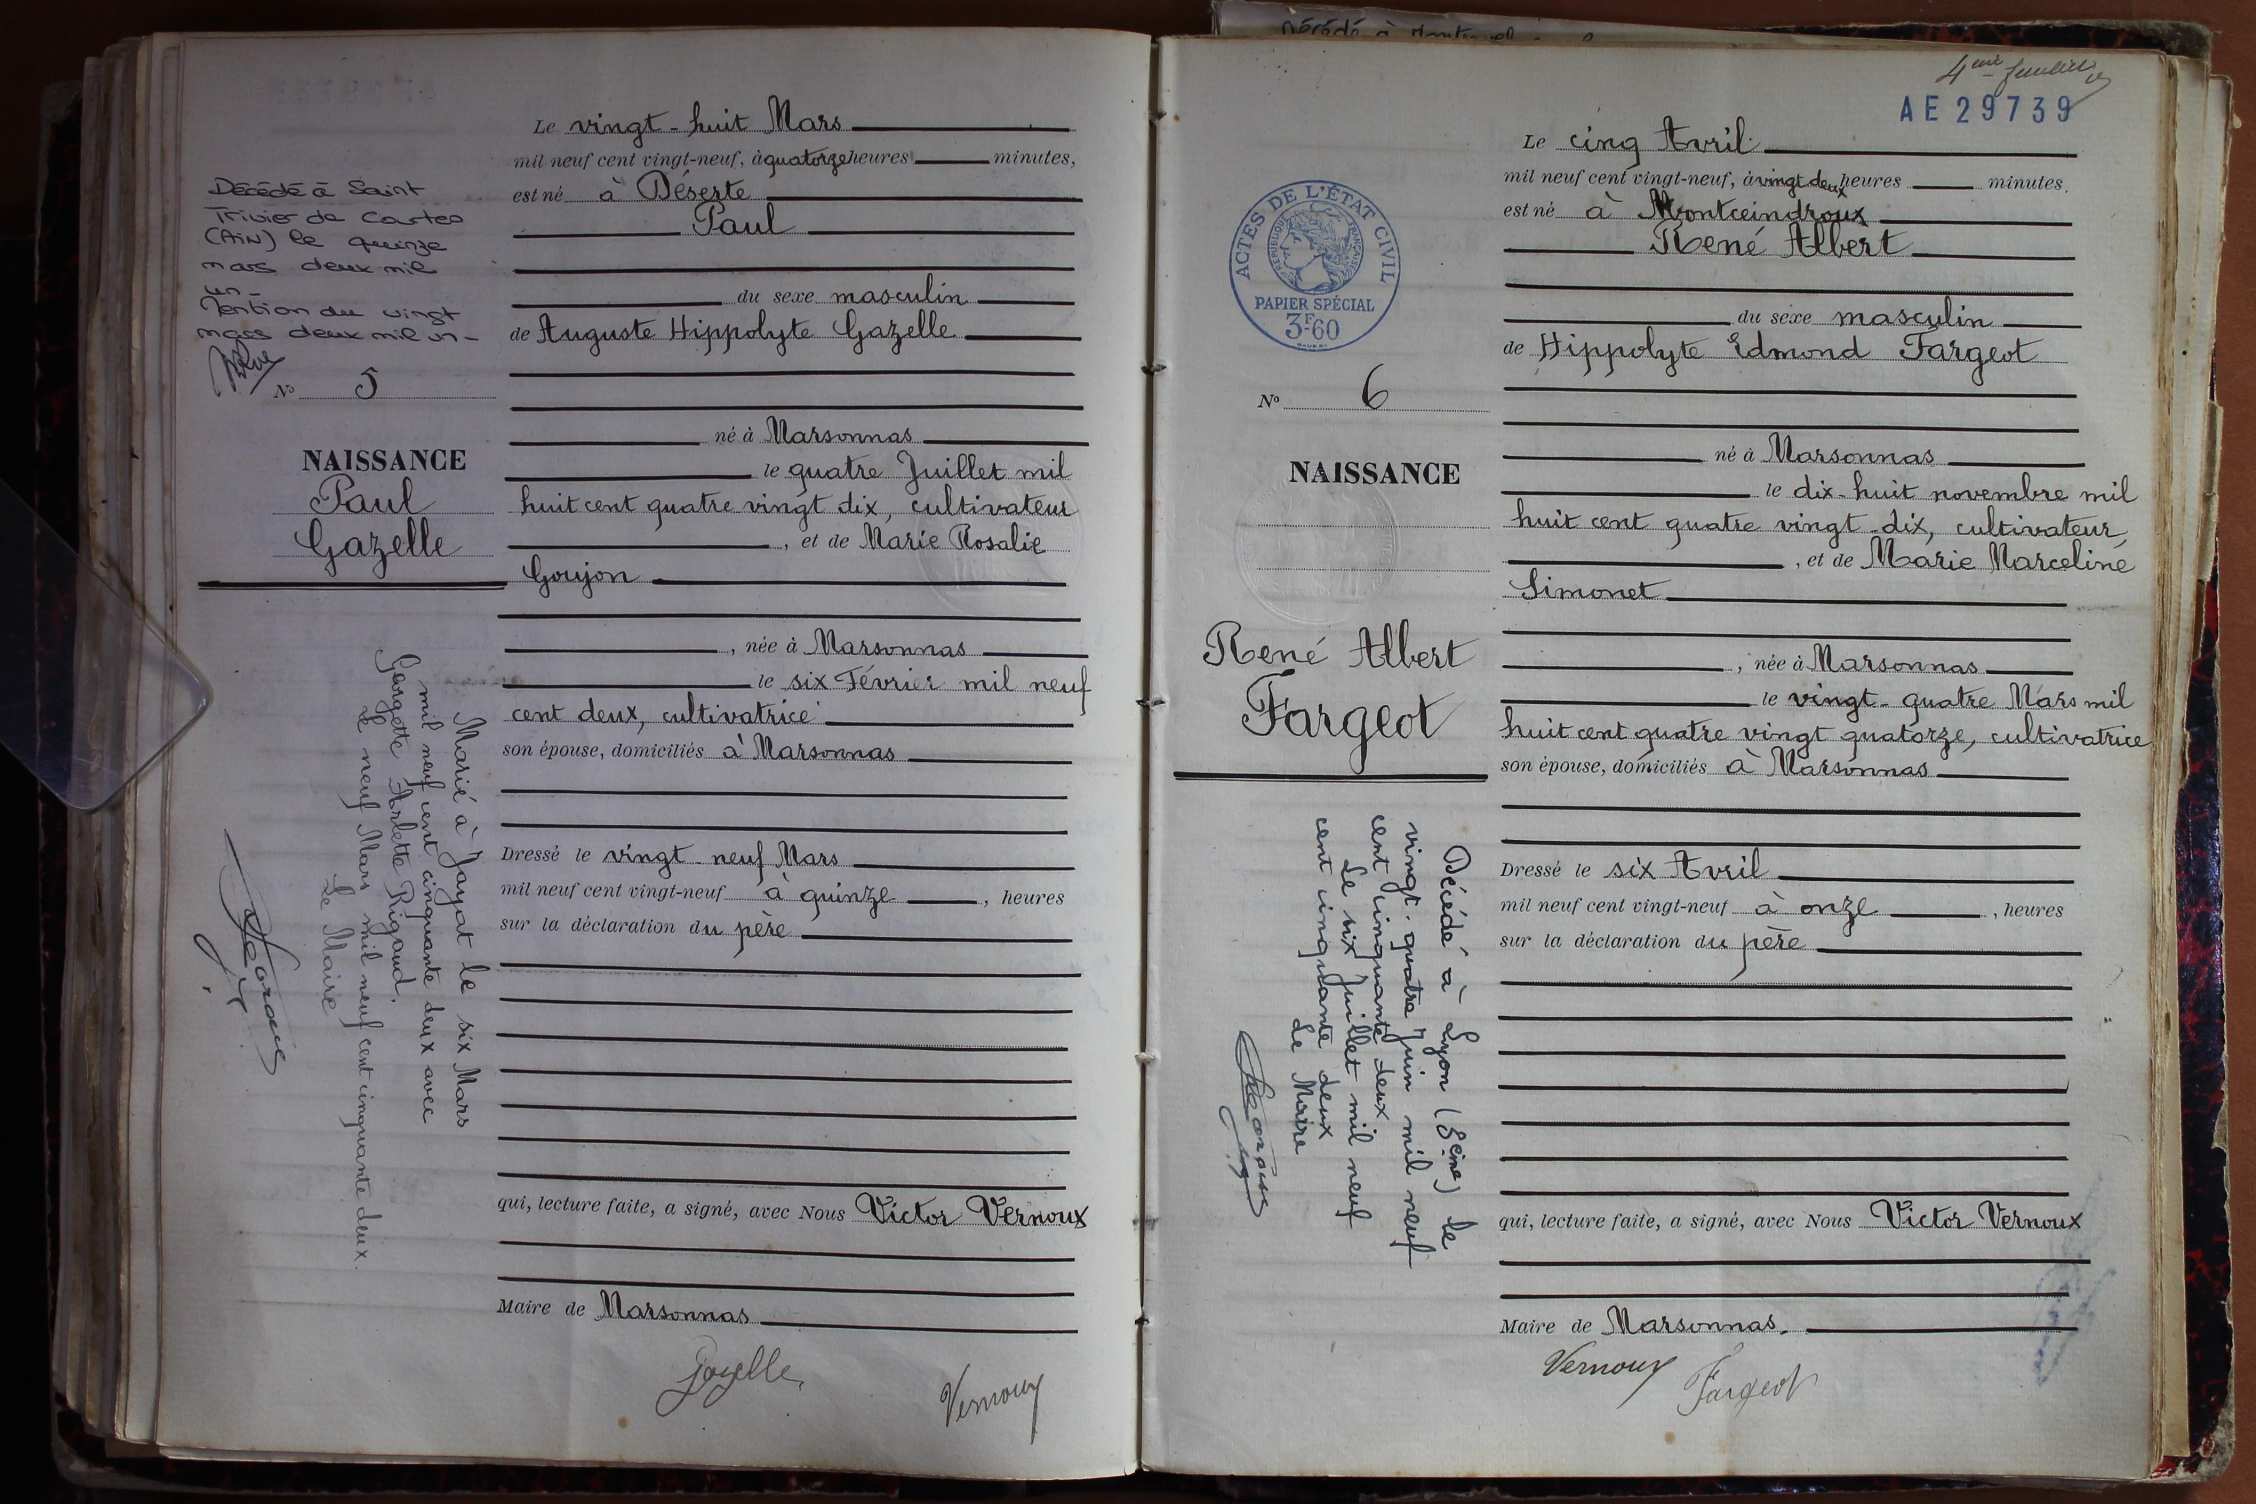 Décédé à Saint
Trivier de Courtes
(AIN) le quinze
mars deux mil
un_
Mention du vingt
mars deux mil un_
N° 5
NAISSANCE
Paul
Gazelle
Marié à Jayat le six Mars
mil neuf cent cinquante deux avec
Georgette Arlette Rigaud.
Le neuf Mars mil neuf cent cinquante deux.
Le Maire
Le vingt-huit Mars
mil neuf cent vingt-neuf, à quatorze heures minutes,
est né à Déserte
Paul
du sexe masculin
de Auguste Hippolyte Gazelle
né à Marsonnas
le quatre Juillet mil
huit cent quatre vingt dix, cultivateur
, et de Marie Rosalie
Goujon
, née à Marsonnas
le six Février mil neuf
cent deux, cultivatrice
son épouse, domiciliés à Marsonnas
Dressé le vingt-neuf Mars
mil neuf cent vingt-neuf à quinze, heures
sur la déclaration du père
qui, lecture faite, a signé, avec Nous Victor Vernoux
Maire de Marsonnas
Gazelle
Vernoux
Décédé à
AE 29739
ACTES DE L'ÉTAT CIVIL
RÉPUBLIQUE FRANÇAISE
PAPIER SPÉCIAL
3F60
N° 6
NAISSANCE
René Albert
Fargeot
Décédé à Lyon (8ème) le
vingt-quatre Juin mil neuf
cent cinquante deux
Le six Juillet mil neuf
cent cinquante deux
Le Maire
Le cinq Avril
mil neuf cent vingt-neuf, à vingt deux heures minutes.
est né à Montceindroux
René Albert
du sexe masculin
de Hippolyte Edmond Fargeot
né à Marsonnas
le dix-huit novembre mil
huit cent quatre vingt-dix, cultivateur,
, et de Marie Marceline
Simonet
, née à Marsonnas
le vingt-quatre Mars mil
huit cent quatre vingt quatorze, cultivatrice
son épouse, domiciliés à Marsonnas
Dressé le six Avril
mil neuf cent vingt-neuf à onze, heures
sur la déclaration du père
qui, lecture faite, a signé, avec Nous Victor Vernoux
Maire de Marsonnas.
Vernoux
Fargeot